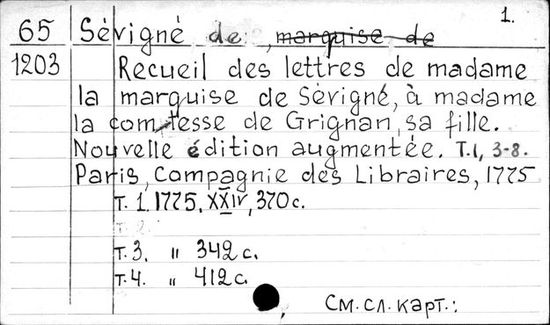 1.
65 Sévigné de, marquise de
1203 Recueil des lettres de madame
la marquise de Sévigné, à madame
la comtesse de Grignan, sa fille.
Nouvelle édition augmentée. T.1, 3-8.
Paris, Compagnie des Libraires, 1775
Т. 1. 1775, XXIV, 370 с.
т. 2.
т. 3. " 342 с.
т. 4. " 412 с.
См. сл. карт.: